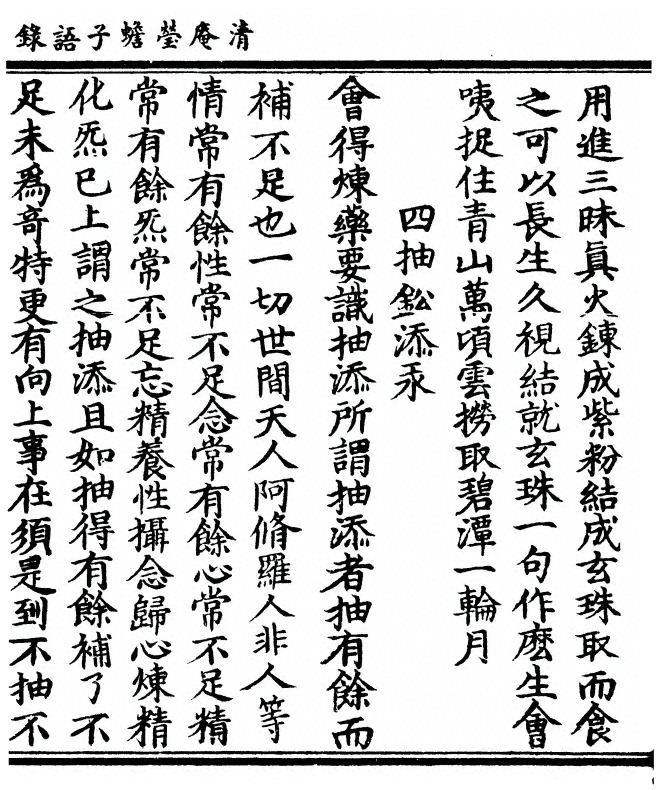 清庵瑩蟾子語錄
用進三昧眞火鍊成紫粉結成玄珠取而食
之可以長生久視結就玄珠一句作麽生會
咦捉住青山萬頃雲撈取碧潭一輪月
四抽鈆添汞
會得煉藥要識抽添所謂抽添者抽有餘而
補不足也一切世間天人阿脩羅人非人等
情常有餘性常不足念常有餘心常不足精
常有餘炁常不足忘精養性攝念歸心煉精
化炁已上謂之抽添且如抽得有餘補了不
足未爲竒特更有向上事在須是到不抽不